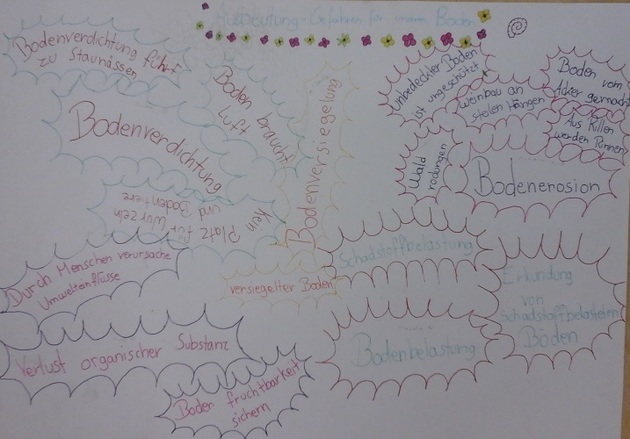 Ausbeutung-Gefahren für unseren Boden
Bodenverdichtung führt
zu Staunässen
Boden braucht
Luft
Bodenverdichtung
kein
Platz für Wurzeln
und Bodentiere
Bodenversiegelung
versiegelter Boden
unbedeckter Boden
ist ungeschützt
Weinbau an
steilen Hängen
Boden vom
Acker gemacht
Aus Rillen
werden Rinnen
Wald
rodungen
Bodenerosion
Schadstoffbelastung
Erkundung
von
schadstoffbelasteten
Böden
Bodenbelastung
Durch Menschen verursache
Umwelteinflüsse
Verlust organischer Substanz
Boden fruchtbarkeit
sichern